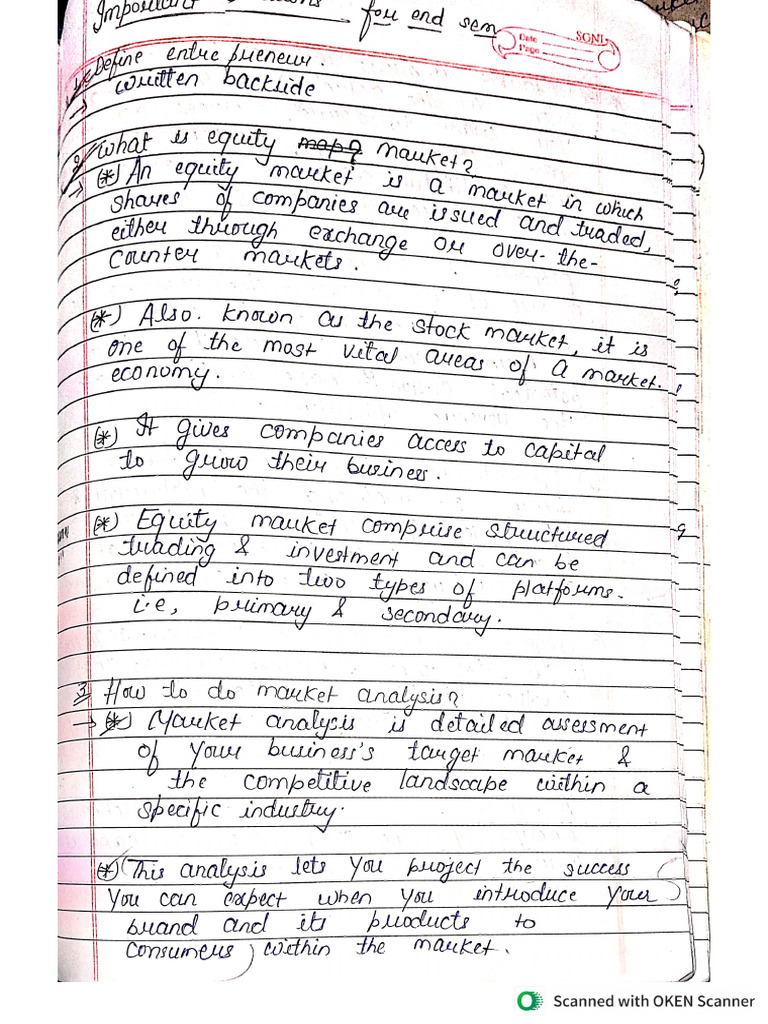 Important for end sem
SONI
Date
Page
1. Define entrepreneur.
→ written backside
2. What is equity market?
→ (*) An equity market is a market in which
shares of companies are issued and traded,
either through exchange or over-the-
counter markets.
(*) Also. known as the stock market, it is
one of the most vital areas of a market.
economy.
(*) It gives companies access to capital
to grow their business.
(*) Equity market comprise structured
trading & investment and can be
defined into two types of platforms.
i.e, primary & secondary.
3. How to do market analysis?
→ (*) Market analysis is detailed assessment
of your business's target market &
the competitive landscape within a
specific industry.
(*) (This analysis lets you project the success
you can expect when you introduce your
brand and its products to
consumers) within the market.
Scanned with OKEN Scanner